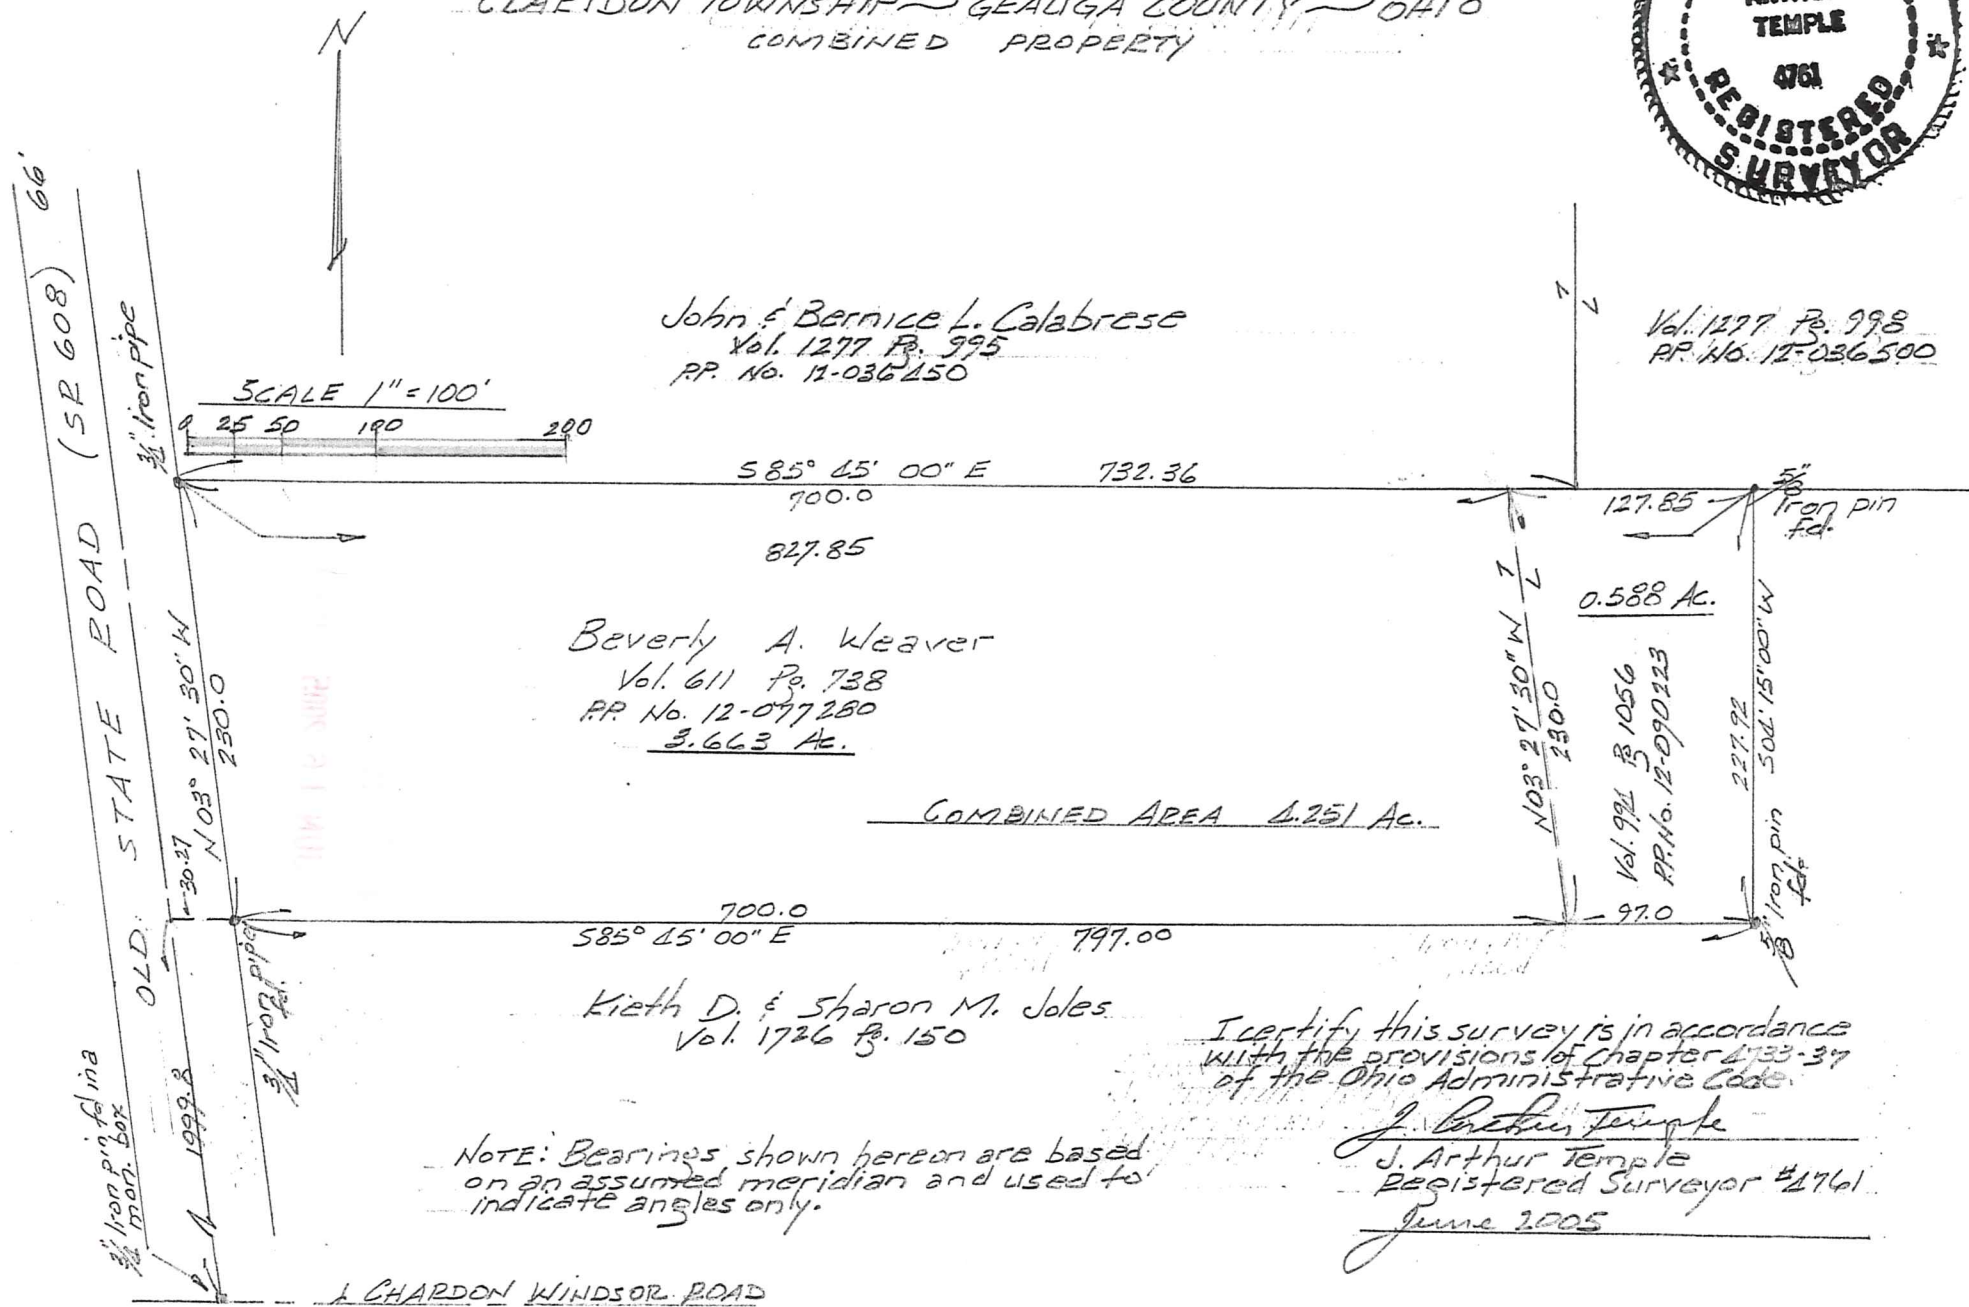 CLARIDON TOWNSHIP ~ GEAUGA COUNTY ~ OHIO
COMBINED PROPERTY
TEMPLE
4761
REGISTERED
SURVEYOR
N
66'
OLD STATE ROAD (SR 608)
3/4" Iron pipe
SCALE 1" = 100'
0 25 50 100 200
John & Bernice L. Calabrese
Vol. 1277 Pg. 995
P.P. No. 12-036450
Vol. 1277 Pg. 998
P.P. No. 12-036500
S85° 45' 00" E 732.36
700.0
827.85
127.85
5/8"
Iron pin
fd.
N03° 27' 30" W
230.0
Beverly A. Weaver
Vol. 611 Pg. 738
P.P. No. 12-077280
3.663 Ac.
COMBINED AREA 4.251 Ac.
N03° 27' 30" W
230.0
0.588 Ac.
Vol. 994 Pg 1056
P.P. No. 12-090223
227.92 S04° 15' 00" W
5/8" Iron pin
fd.
30.27
700.0
97.0
S85° 45' 00" E 797.00
3/4" Iron pipe
fd.
Kieth D. & Sharon M. Joles
Vol. 1726 Pg. 150
I certify this survey is in accordance
with the provisions of chapter 4733-37
of the Ohio Administrative Code.
J. Arthur Temple
J. Arthur Temple
Registered Surveyor #4761
June 2005
NOTE: Bearings shown hereon are based
on an assumed meridian and used to
indicate angles only.
1999.8
Iron pin fd in a
mon. box
CHARDON WINDSOR ROAD